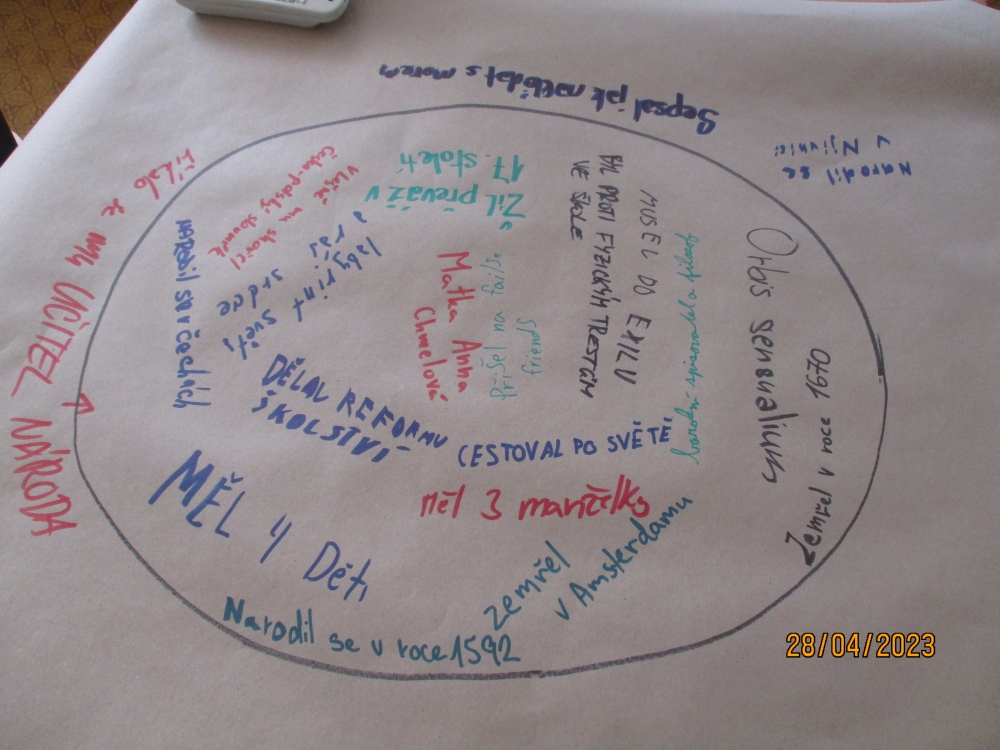 Sepsal jak nakládat s
Narodil se
v Nivnici
Říkalo se mu UČITEL NÁRODA
Žil převáž v
17. století
BYL PROTI FYZICKÝM TRESTŮM
VE ŠKOLE
MUSEL DO EXILU
národní spisovatel a filozof
Orbis sensualium
Zemřel v roce 1670
Vlastně mu shořel
Česko-
slovník
labyrint
světa
a ráj
srdce
NARODIL SE V Čechách
Matka Anna
Chmelová
Přišel na
friends
DĚLAL REFORMU
ŠKOLSTVÍ
CESTOVAL PO SVĚTĚ
MĚL 3 manželky
MĚL 4 Děti
zemřel
v Amsterdamu
Narodil se v roce 1592
28/04/2023